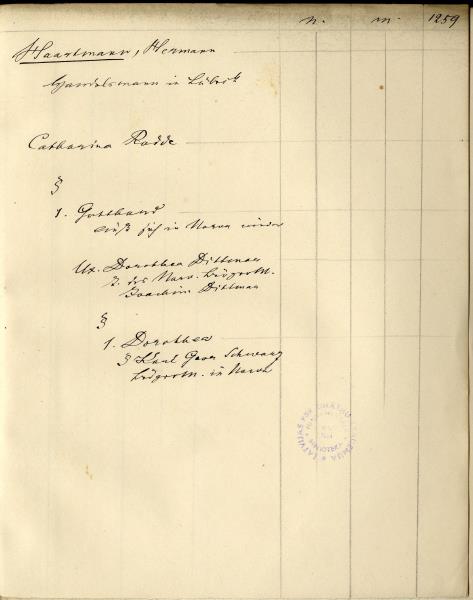 n. m. 1259
Haartmann, Hermann
Handelsmann in Lübeck
Catharina Rodde
§
1. Gotthard
ließ sich in Narva nieder
Ux. Dorothea Dittmar
T. des Narv. Bürgerm.
Joachim Dittmar
§
1. Dorothea
§ Karl Schwarz
Bürgerm. in Narva
LATVIJAS PSR